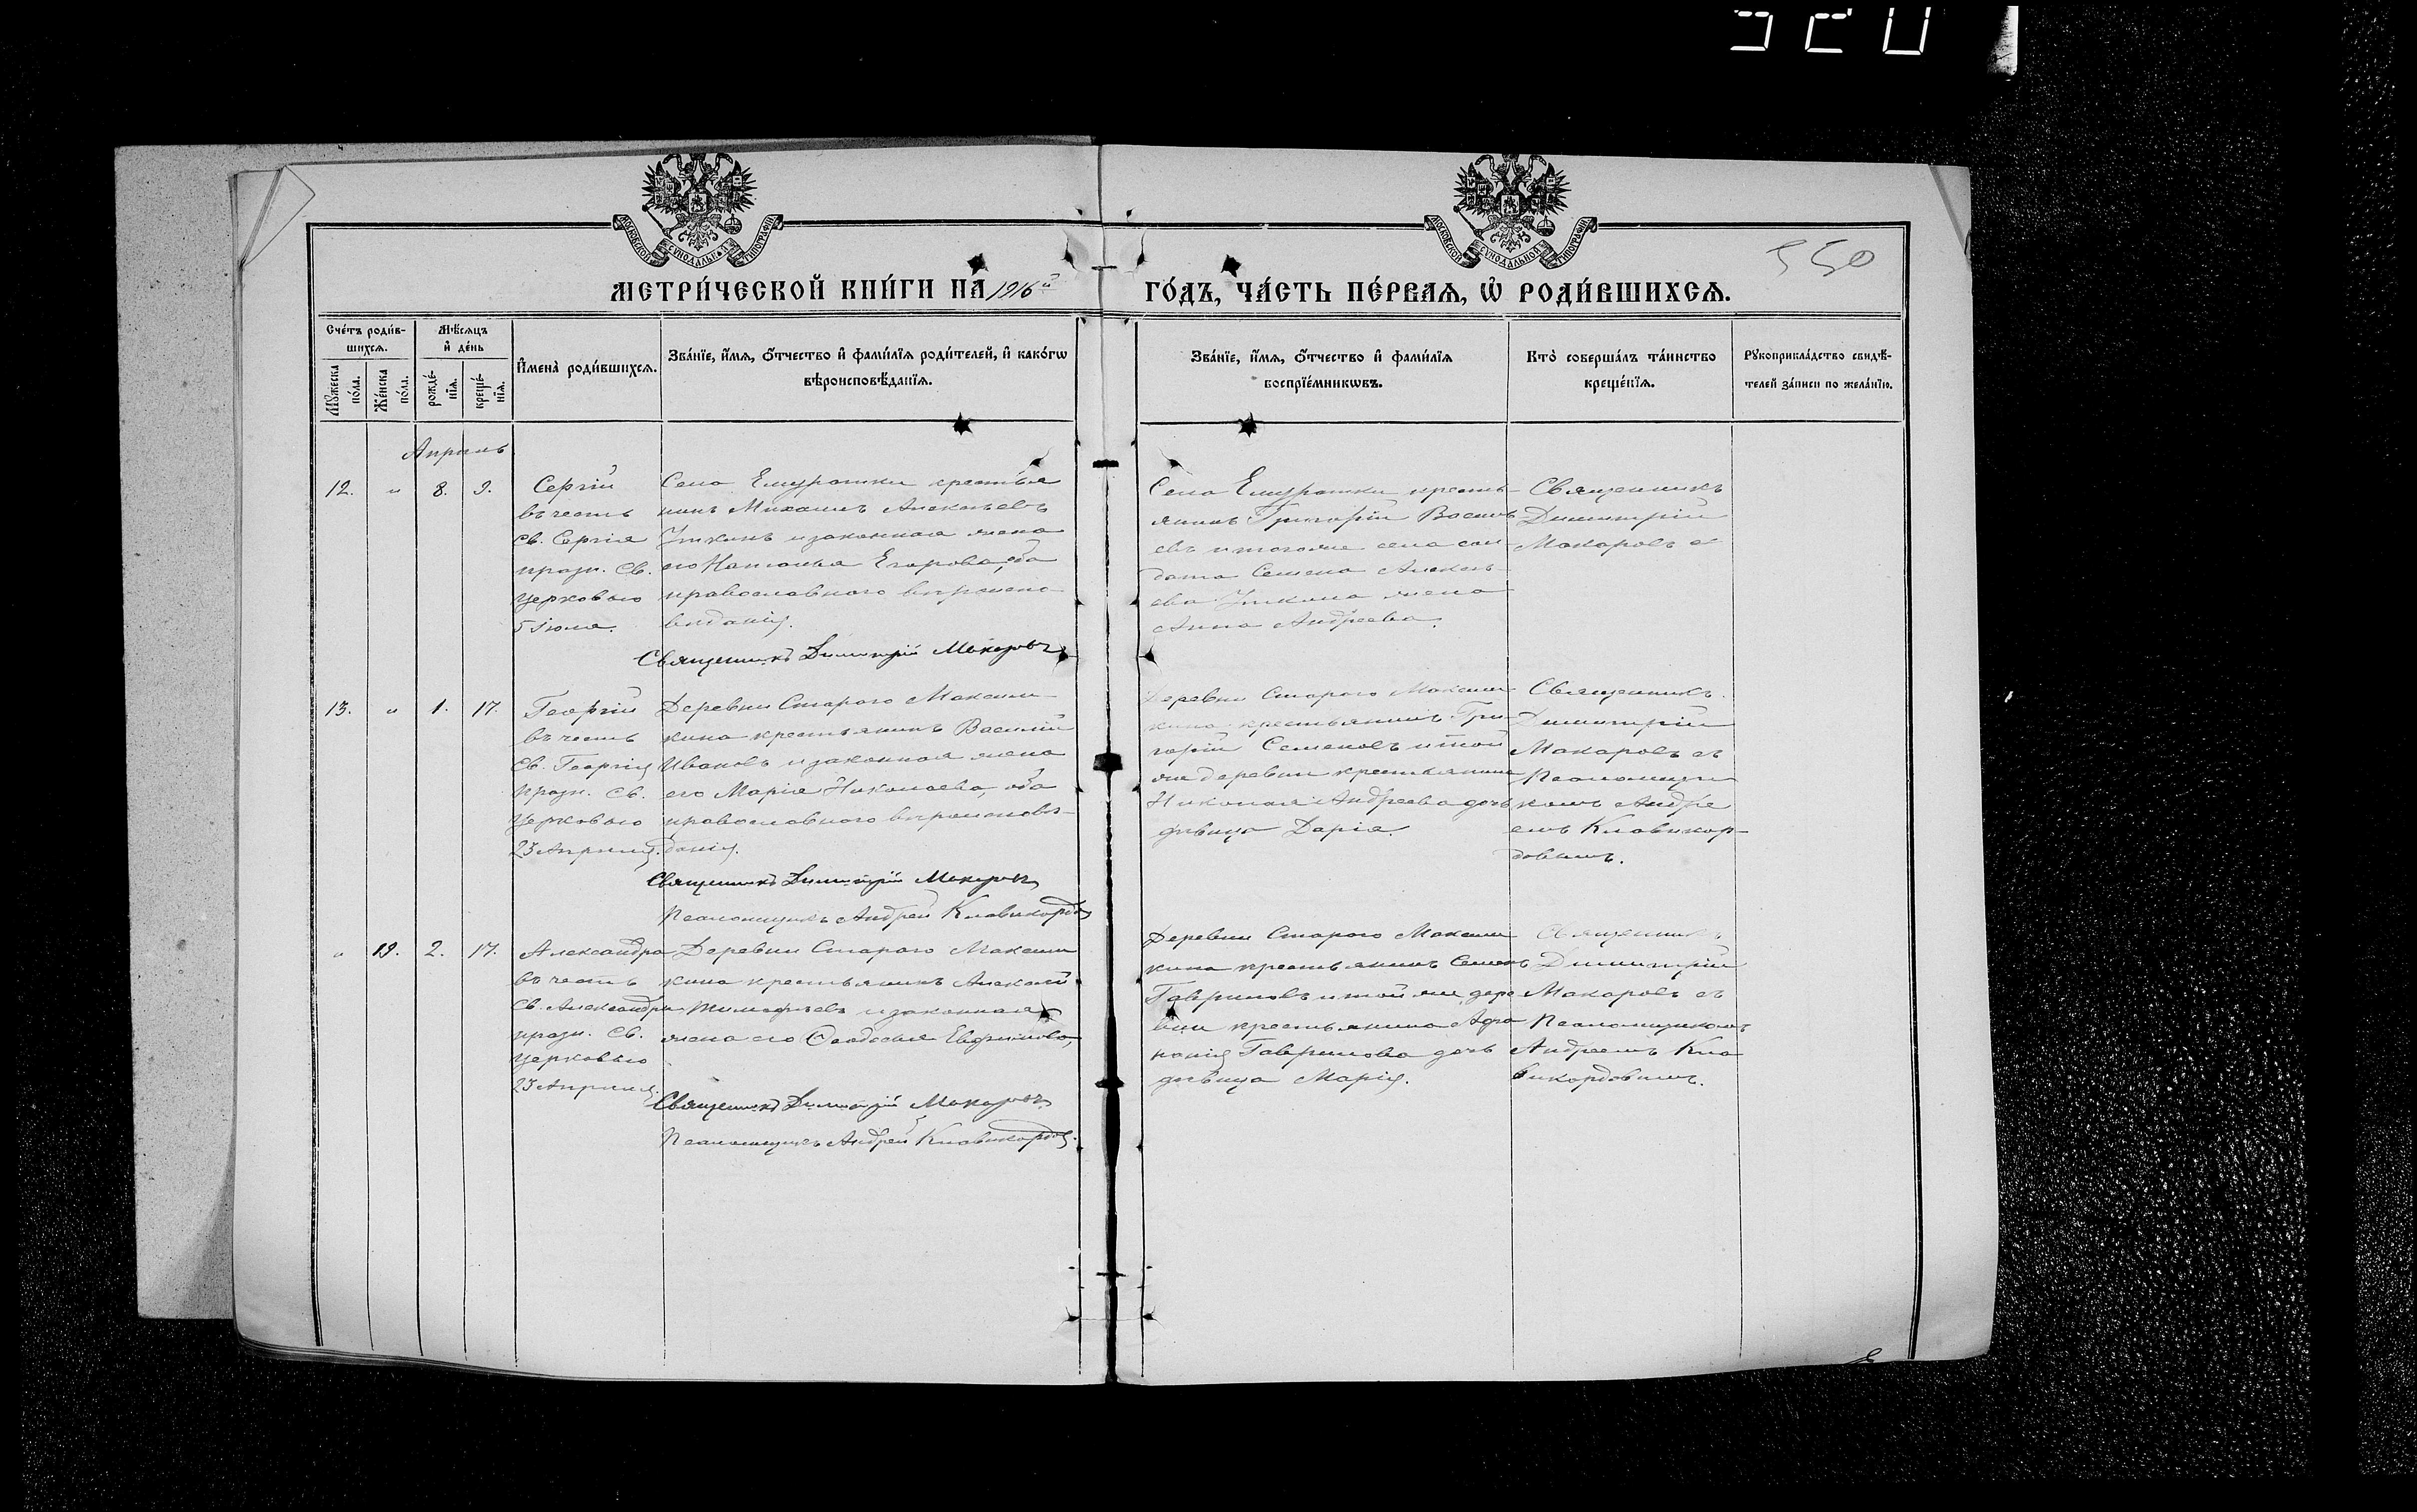 МОСКОВСКОЙ СѴНОДАЛЬНОЙ ТИПОГРАФІИ
МОСКОВСКОЙ СѴНОДАЛЬНОЙ ТИПОГРАФІИ
550
МЕТРИ́ЧЕСКОЙ КНИ́ГИ НА 1916й ГО́ДЪ, ЧА́СТЬ ПЕ́РВАЯ, Ѡ҆ РОДИ́ВШИХСЯ.
Сче́тъ роди́в-
шихся.
Мꙋ́жеска по́ла.
Же́нска по́ла.
Мѣ́сяцъ
и҆ де́нь
рожде́-
нїя.
креще́-
нїя.
И҆мена̀ роди́вшихся.
Зва́нїе, и҆́мя, ѻ҆́тчество и҆ фами́лїя роди́телей, и҆ како́гѡ
вѣроисповѣ́данїя.
Зва́нїе, и҆́мя, ѻ҆́тчество и҆ фами́лїя
воспрїе́мникѡвъ.
Кто̀ соверша́лъ та́инство
креще́нїя.
Рꙋкоприкла́дство свидѣ́-
телей за́писи по жела́нїю.
Апрель
12. " 8. 9.
Сергій
въ честь
св. Сергія
празн. Св.
Церковью
5 іюля.
Села Емуратки крестья
нинъ Михаилъ Алексѣевъ
и законная жена
его Наталья Егорова, оба
православнаго вѣроиспо-
вѣданія.
Священникъ Димитрій Макаровъ
Села Емуратки кресть-
янинъ Григорій
евъ и того же села сол-
дата Семена Алексѣ-
ева жена
Анна Андреева.
Священникъ
Димитрій
Макаровъ
13. " 1. 17.
Георгій
въ честь
Св. Георгія
празн. Св.
Церковью
23 Апрѣля.
Деревни Стараго Максим-
кина крестьянинъ Василій
Ивановъ и законная жена
его Марія Николаева, оба
православнаго вѣроисповѣ-
данія.
Священникъ Димитрій Макаровъ
Псаломщикъ Андрей Клавикордовъ
Деревни Стараго Максим
кина крестьянинъ Гри-
горій Семеновъ и той
же деревни крестьянина
Николая Андреева дочь
дѣвица Дарія.
Священникъ
Димитрій
Макаровъ съ
Псаломщи
комъ Андре
емъ Клавикор-
довымъ.
" 19. 2. 17.
Александра
въ честь
Св. Александры
празн. Св.
Церковью
23 Апрѣля.
Деревни Стараго Максим
кина крестьянинъ Алексѣй
Тимофѣевъ и законная
жена его Ѳеодосія
Священникъ Димитрій Макаровъ
Псаломщикъ Андрей Клавикордовъ.
Деревни Стараго Максим
кина крестьянинъ Семенъ
Гавриловъ и той же дере
вни крестьянина Афа
насія Гаврилова дочь
дѣвица Марія.
Священникъ
Димитрій
Макаровъ съ
Псаломщикомъ
Андреемъ Кла
викордовымъ.